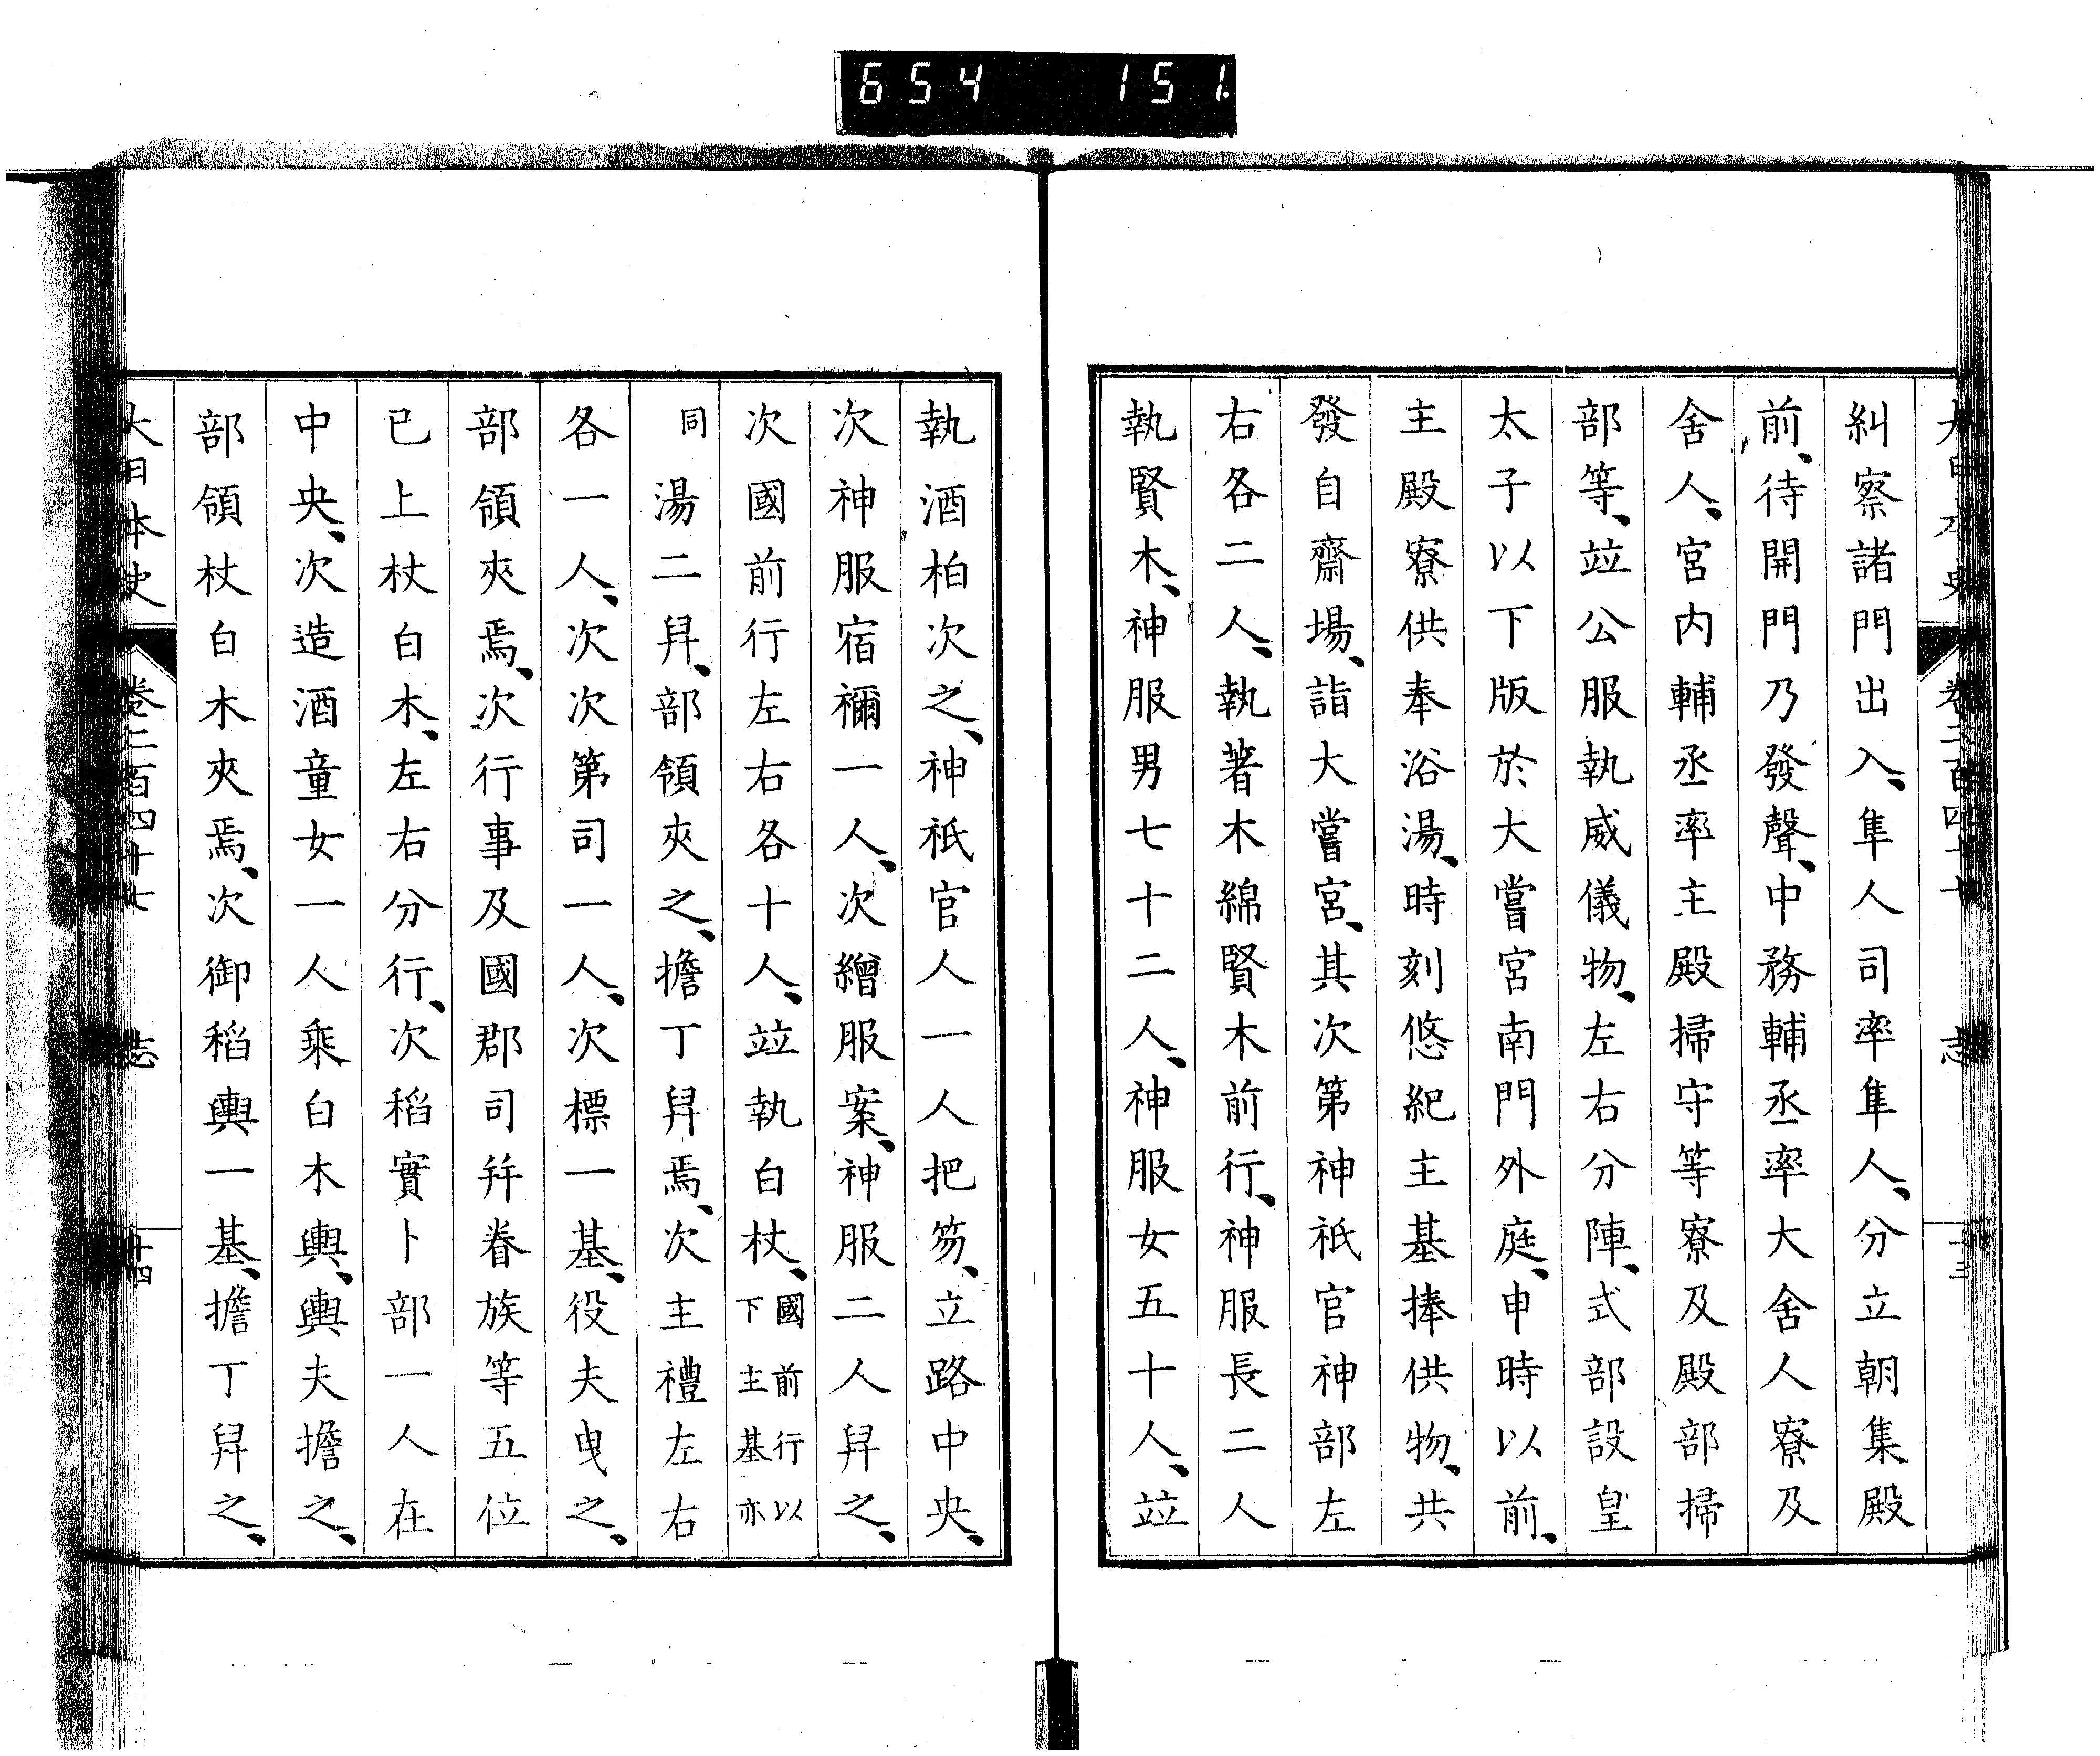 654 151.
糾察諸門出入、隼人司率隼人、分立朝集殿
前、待開門乃發聲、中務輔丞率大舍人寮及
舍人、宮内輔丞率主殿掃守等寮及殿部掃
部等、竝公服執威儀物、左右分陣、式部設皇
太子以下版於大嘗宮南門外庭、申時以前、
主殿寮供奉浴湯、時刻悠紀主基捧供物、共
發自齋場、詣大嘗宮、其次第神祇官神部左
右各二人、執著木綿賢木前行、神服長二人
執賢木、神服男七十二人、神服女五十人、竝
執酒柏次之、神祇官人一人把笏、立路中央、
次神服宿禰一人、次繒服案、神服二人舁之、
次國前行左右各十人、竝執白杖、國前行以下主基亦
同湯二舁、部領夾之、擔丁舁焉、次主禮左右
各一人、次次第司一人、次標一基、役夫曳之、
部領夾焉、次行事及國郡司幷眷族等五位
已上杖白木、左右分行、次稻實卜部一人在
中央、次造酒童女一人乘白木輿、輿夫擔之、
部領杖白木夾焉、次御稻輿一基、擔丁舁之、
大日本史 卷二百四十七 志 十四